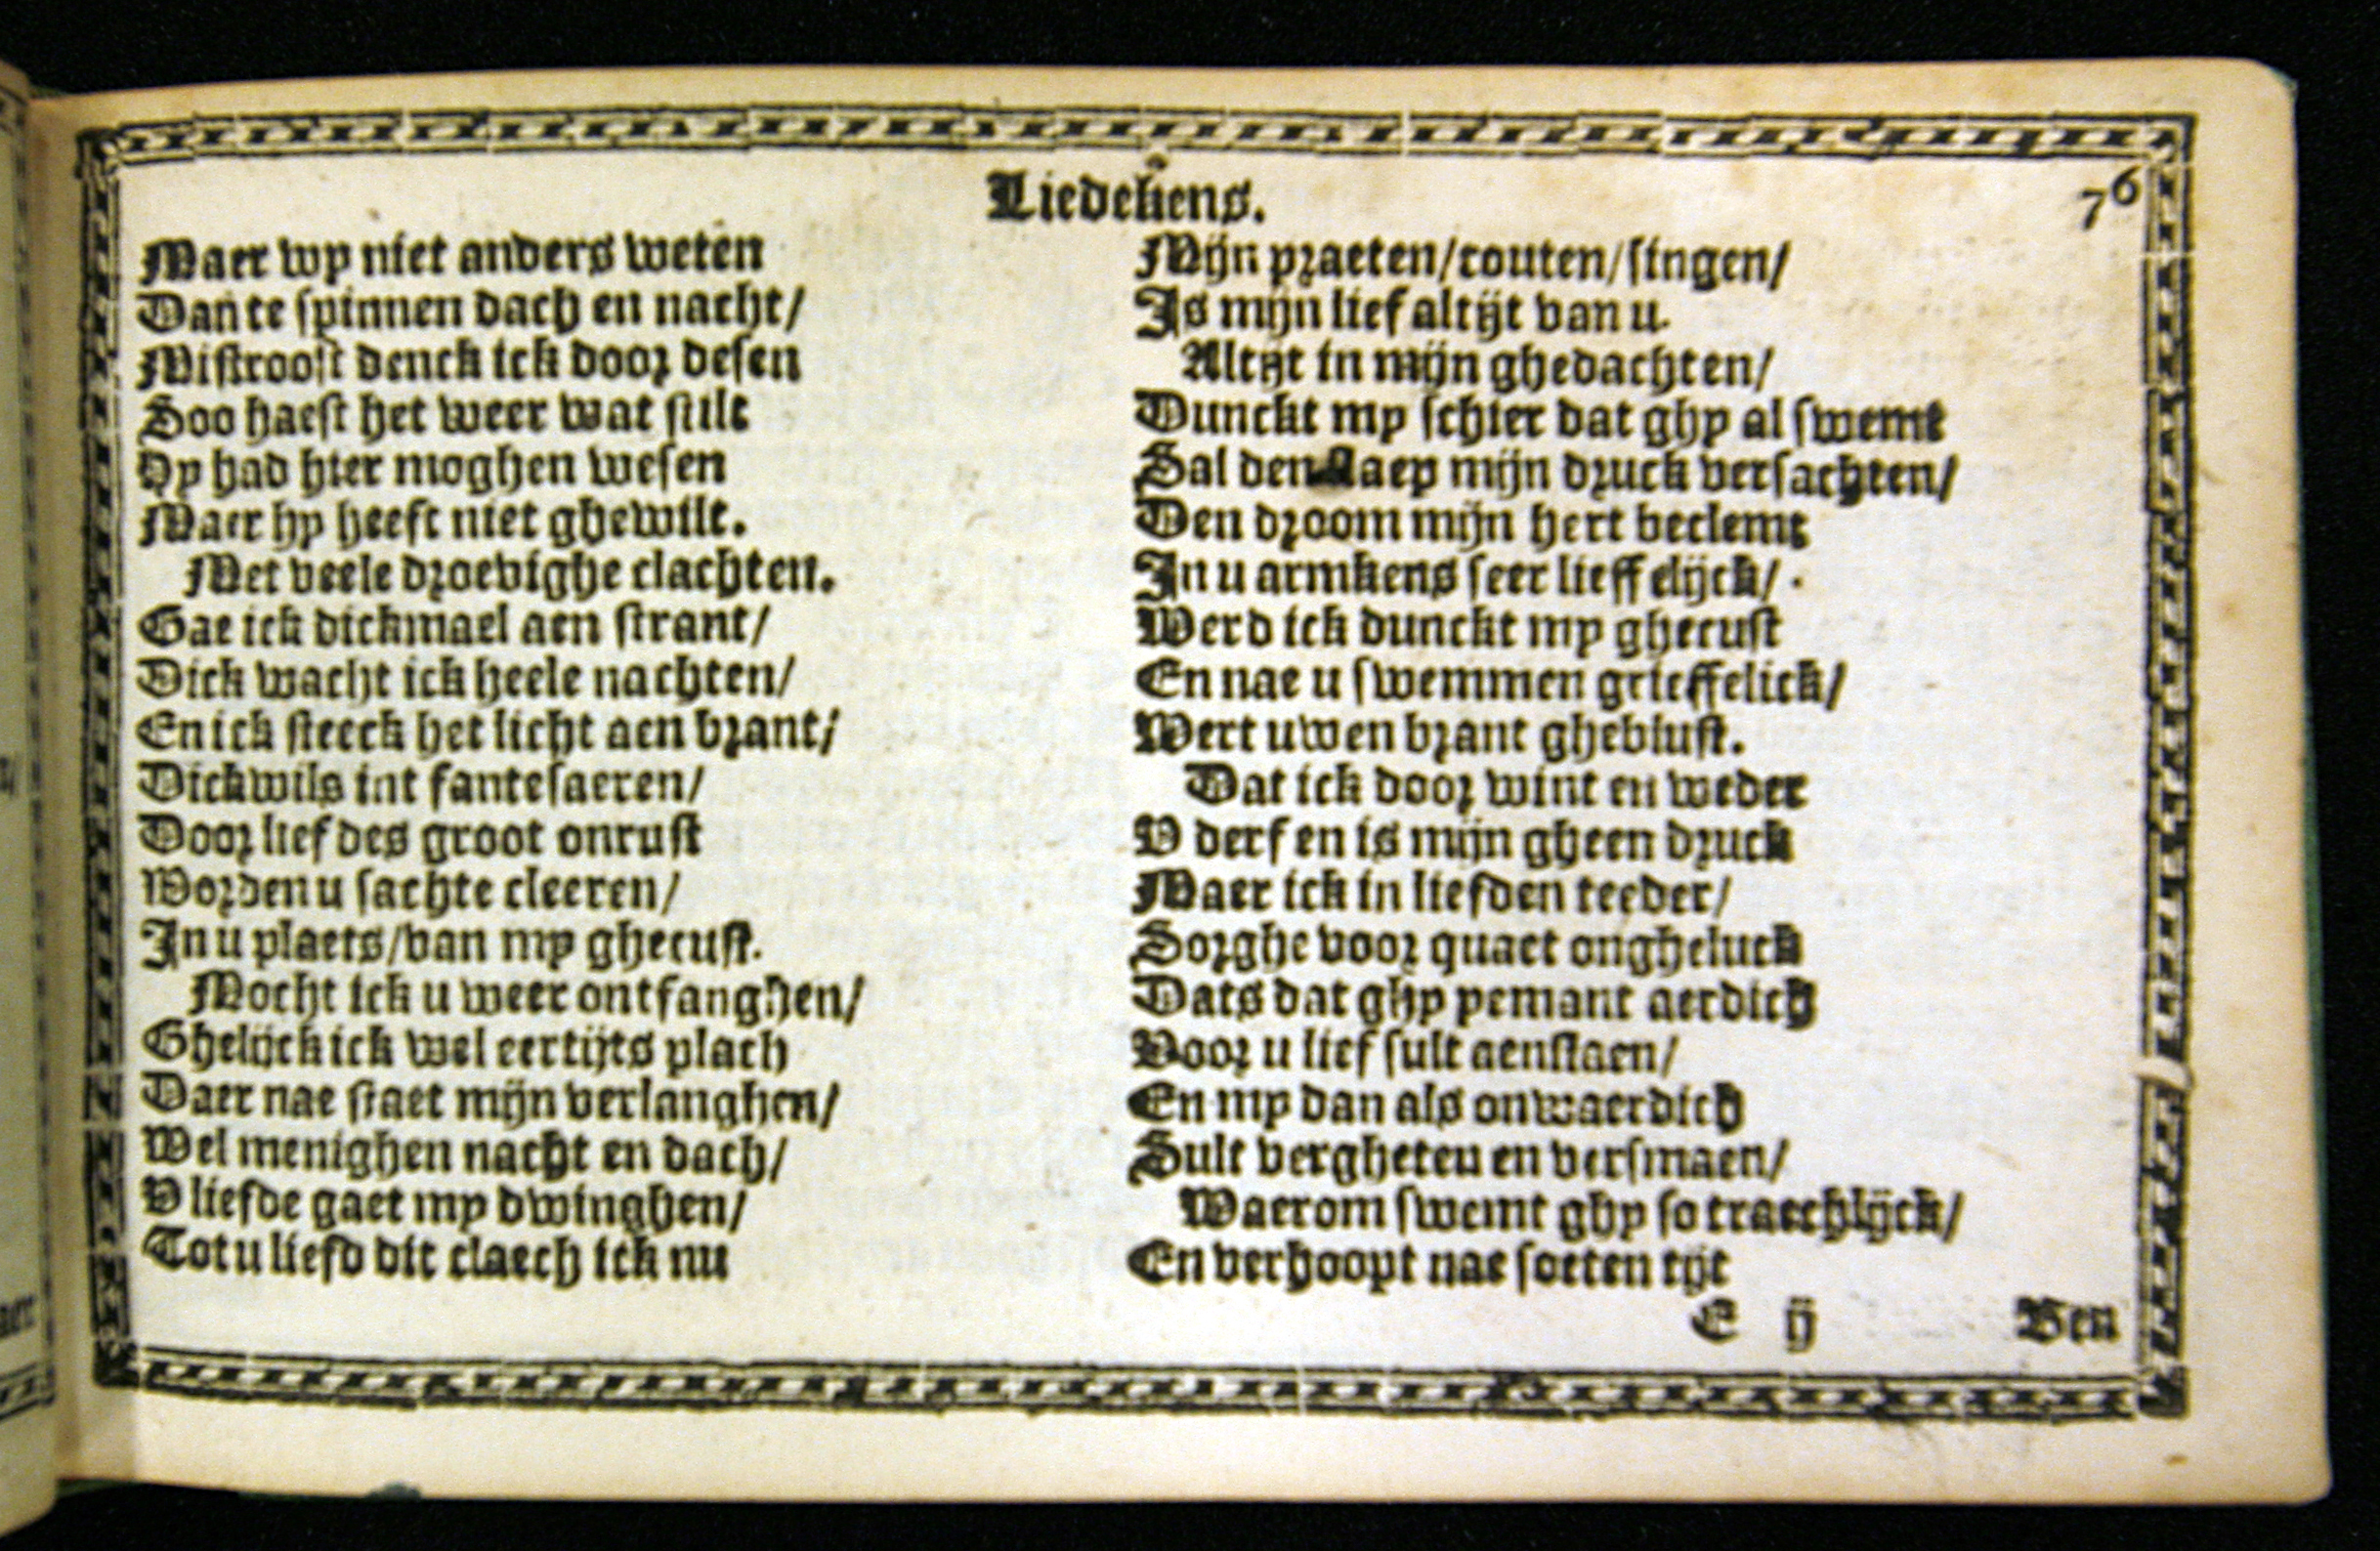 Liedekens.
76
Maer wy niet anders weten
Dan te spinnen dach en nacht/
Mistroost denck ick door desen
Soo haest het weer wat stilt
Hy had hier moghen wesen
Maer hy heeft niet ghewilt.
Met veele droevighe clachten.
Gae ick dickmael aen strant/
Dick wacht ick heele nachten/
En ick steeck het licht aen brant/
Dickwils int fantesaeren/
Door liefdes groot onrust
Worden u sachte cleeren/
In u plaets/van my ghecust.
Mocht ick u weer ontfanghen/
Ghelijck ick wel eertijts plach
Daer nae staet mijn verlanghen/
Wel menighen nacht en dach/
V liefde gaet my dwinghen/
Tot u liefd dit claech ick nu
Mijn praeten/couten/singen/
Is mijn lief altijt van u.
Altijt in mijn ghedachten/
Dunckt my schier dat ghy al swemt
Sal den slaep mijn druck versachten/
Den droom mijn hert beclemt
In u armkens seer lieffelijck/
Werd ick dunckt my ghecust
En nae u swemmen grieffelick/
Wert uwen brant gheblust.
Dat ick door wint en weder
V derf en is mijn gheen druck
Maer ick in liefden teeder/
Sorghe voor quaet ongheluck
Dats dat ghy yemant aerdich
Voor u lief sult aenslaen/
En my dan als onwaerdich
Sult vergheten en versmaen/
Waerom swemt ghy so traechlijck/
En verhoopt nae soeten tijt
E ij
Ben